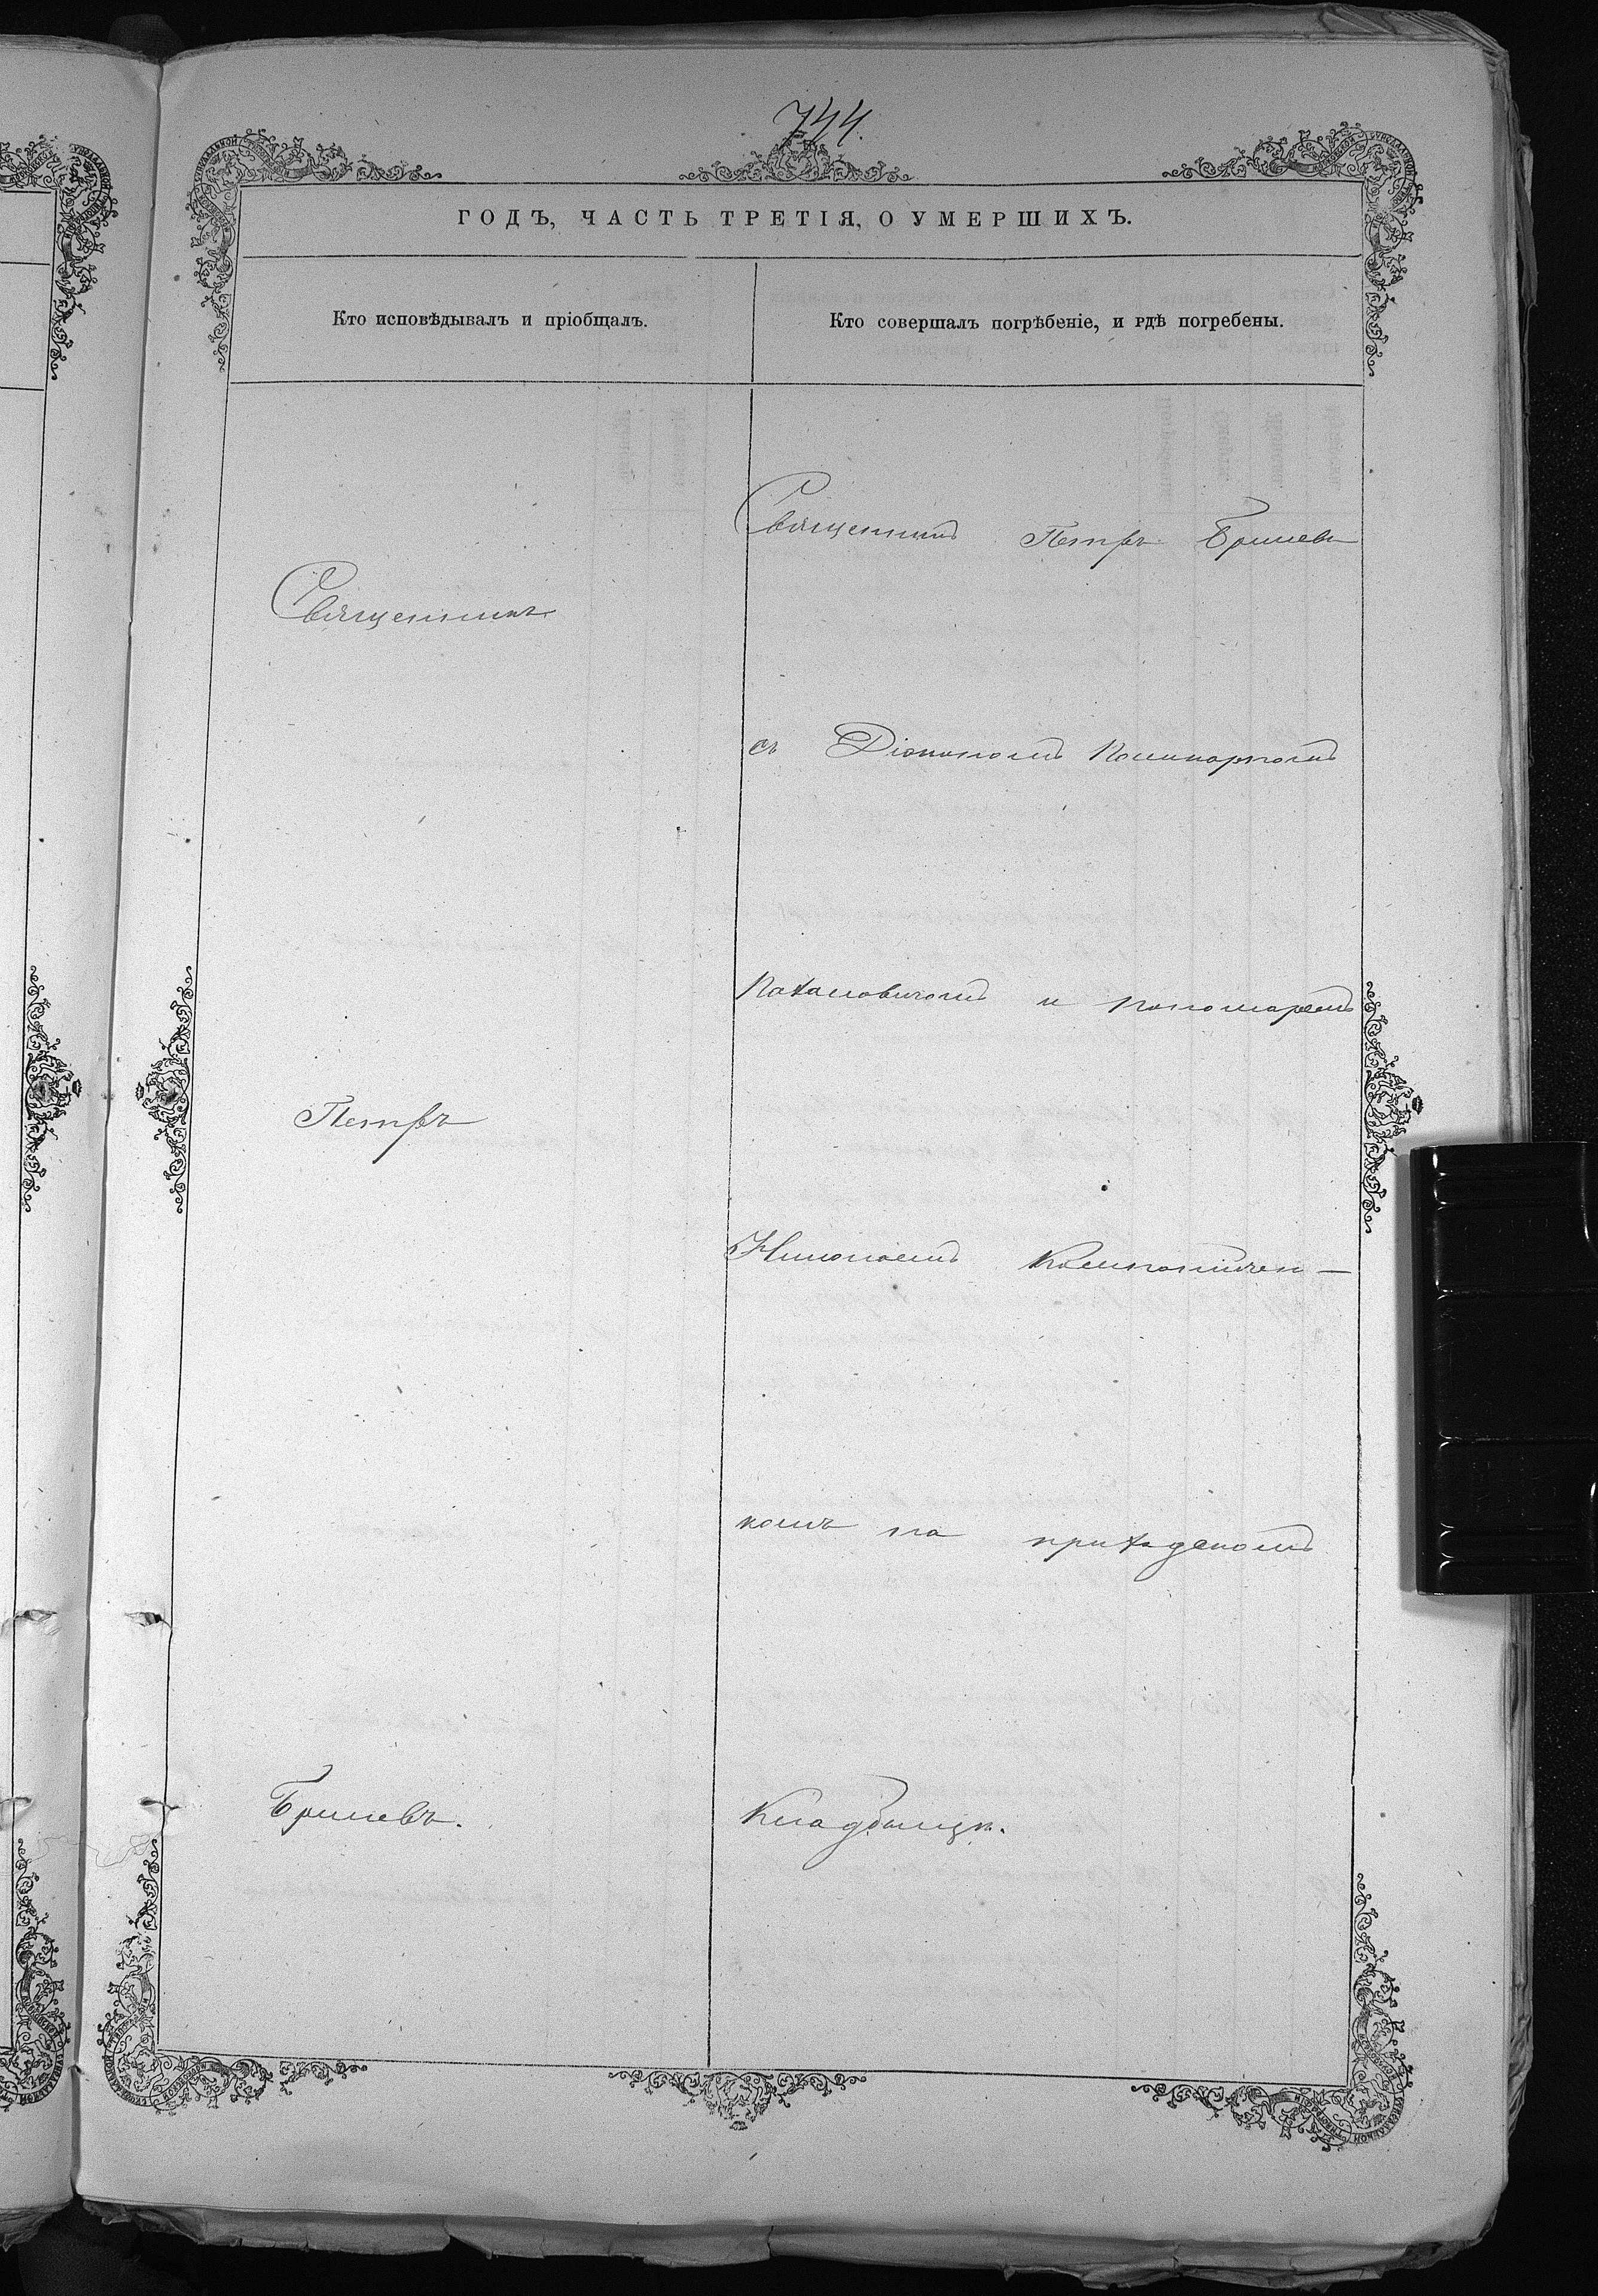 744.
ГОДЪ, ЧАСТЬ ТРЕТІЯ, О УМЕРШИХЪ.
Кто исповѣдывалъ и пріобщалъ.
Кто совершалъ погрѣбеніе, и гдѣ погребены.
Священникъ
Петръ
Священникъ Петръ
съ Діакономъ
и пономаремъ
Николаемъ
комъ на приходскомъ
Кладбищѣ.